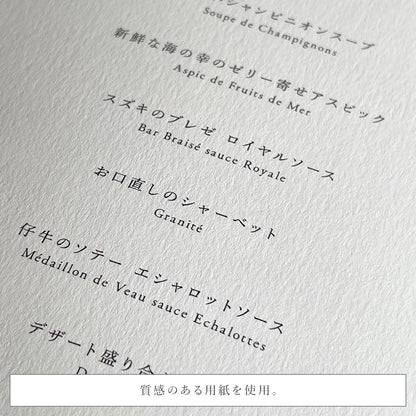 シャンピニオンスープ
Soupe de Champignons
新鮮な海の幸のゼリー寄せアスピック
Aspic de Fruits de Mer
スズキのブレゼ ロイヤルソース
Bar Braisé sauce Royale
お口直しのシャーベット
Granité
仔牛のソテー エシャロットソース
Médaillon de Veau sauce Echalottes
デザート盛り合
D
質感のある用紙を使用。